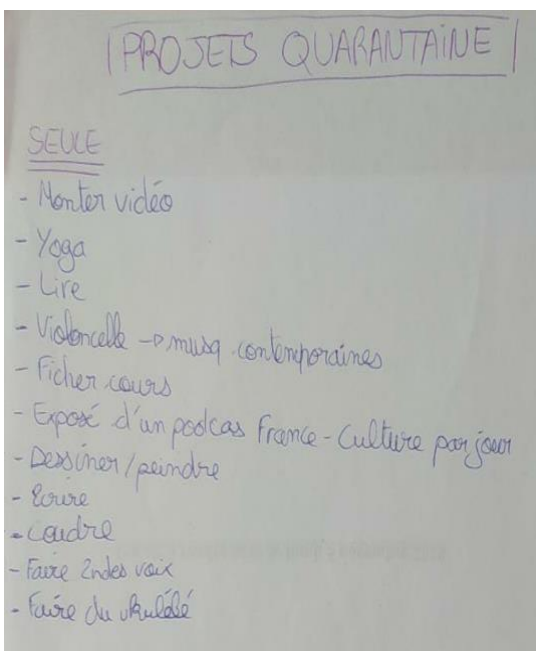 PROJETS QUARANTAINE
SEULE
- Monter vidéo
- Yoga
- Lire
- Violoncelle → musq contemporaines
- Ficher cours
- Exposé d'un podcas France-Culture par jour
- Dessiner/peindre
- Ecrire
- Coudre
- Faire 2ndes voix
- Faire du ukulélé